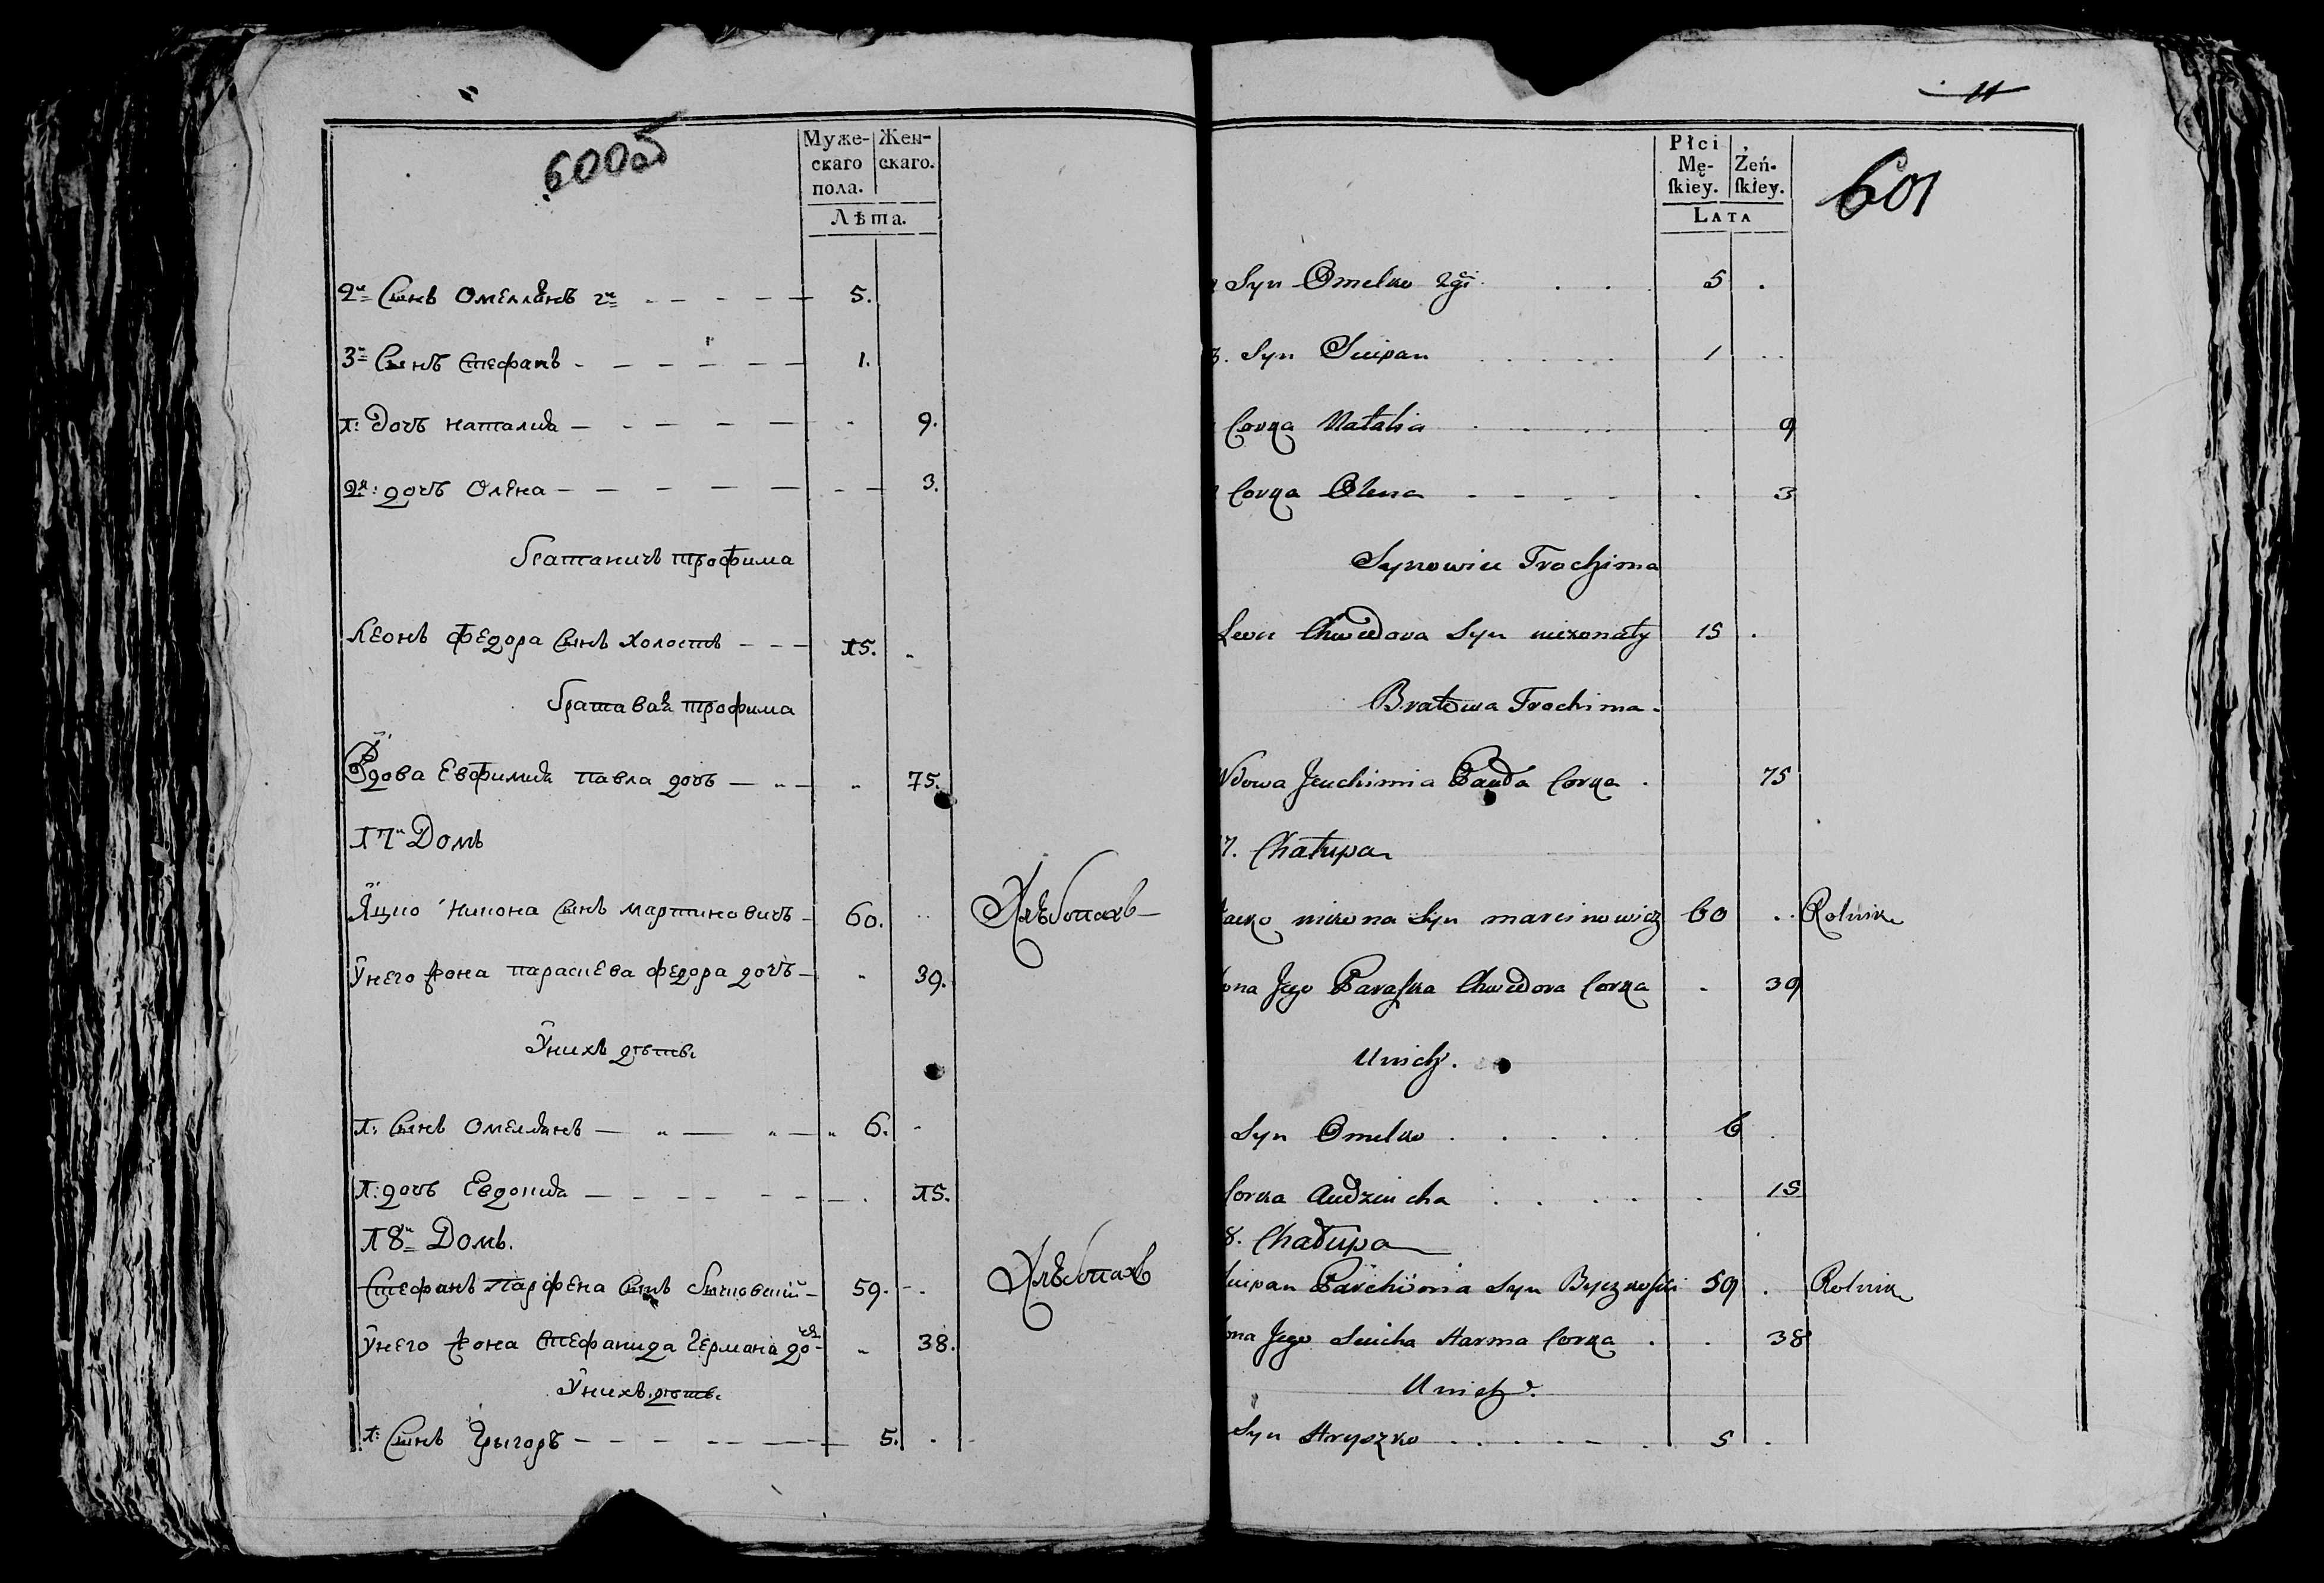 600об
Муже- Жен-
скаго скаго.
пола.
Лѣта.
2й Сынъ Омелланъ 2й 5.
3й Сынъ Стефанъ 1.
1: Дочъ наталиѧ 9.
2я: дочъ Олена 3.
братаничъ трофима
Леонъ федора Сынъ холостъ 15.
братаваѧ трофима
Вдова Евфимиѧ павла дочъ 75.
17й Домъ
Яцко Никона Сынъ мартиновичъ 60. Хлѣбопахъ
Унего жона параскева федора дочъ 39.
Унихъ дѣти
1: Сынъ Омелѧнъ 6.
1: дочъ Евдокиѧ 15.
18й Домъ.
Стефанъ Парфена Сынъ бычковский 59. Хлѣбопахъ
Унего жона Стефанида Германа дочъ 38.
Унихъ дѣти
1: Сынъ Грыгоръ 5.
11
Płci
Mę- Żeń-
ſkiey. ſkiey.
LATA
601
Syn Omelko 2gi 5
3. Syn Sciepan 1
Corka Natalia 9
Corka Olena 3
Synowiec Trochima
Leon Chwedora Syn niezonaty 15
Bratowa Trochima
Wdowa Jeuchimia Pauła Corka 75
7. Chałupa
Nikona Syn marcinowicz 60 Rolnik
ona Jego Paraſka Chwedora Corka 39
Unich
Syn Omelko 6
Corka Audziucha 15
8. Chałupa
Parchiona Syn Byczkoſki 59 Rolnik
ona Jego Sciecha Harma Corka 38
Unich
Syn Hryszko 5